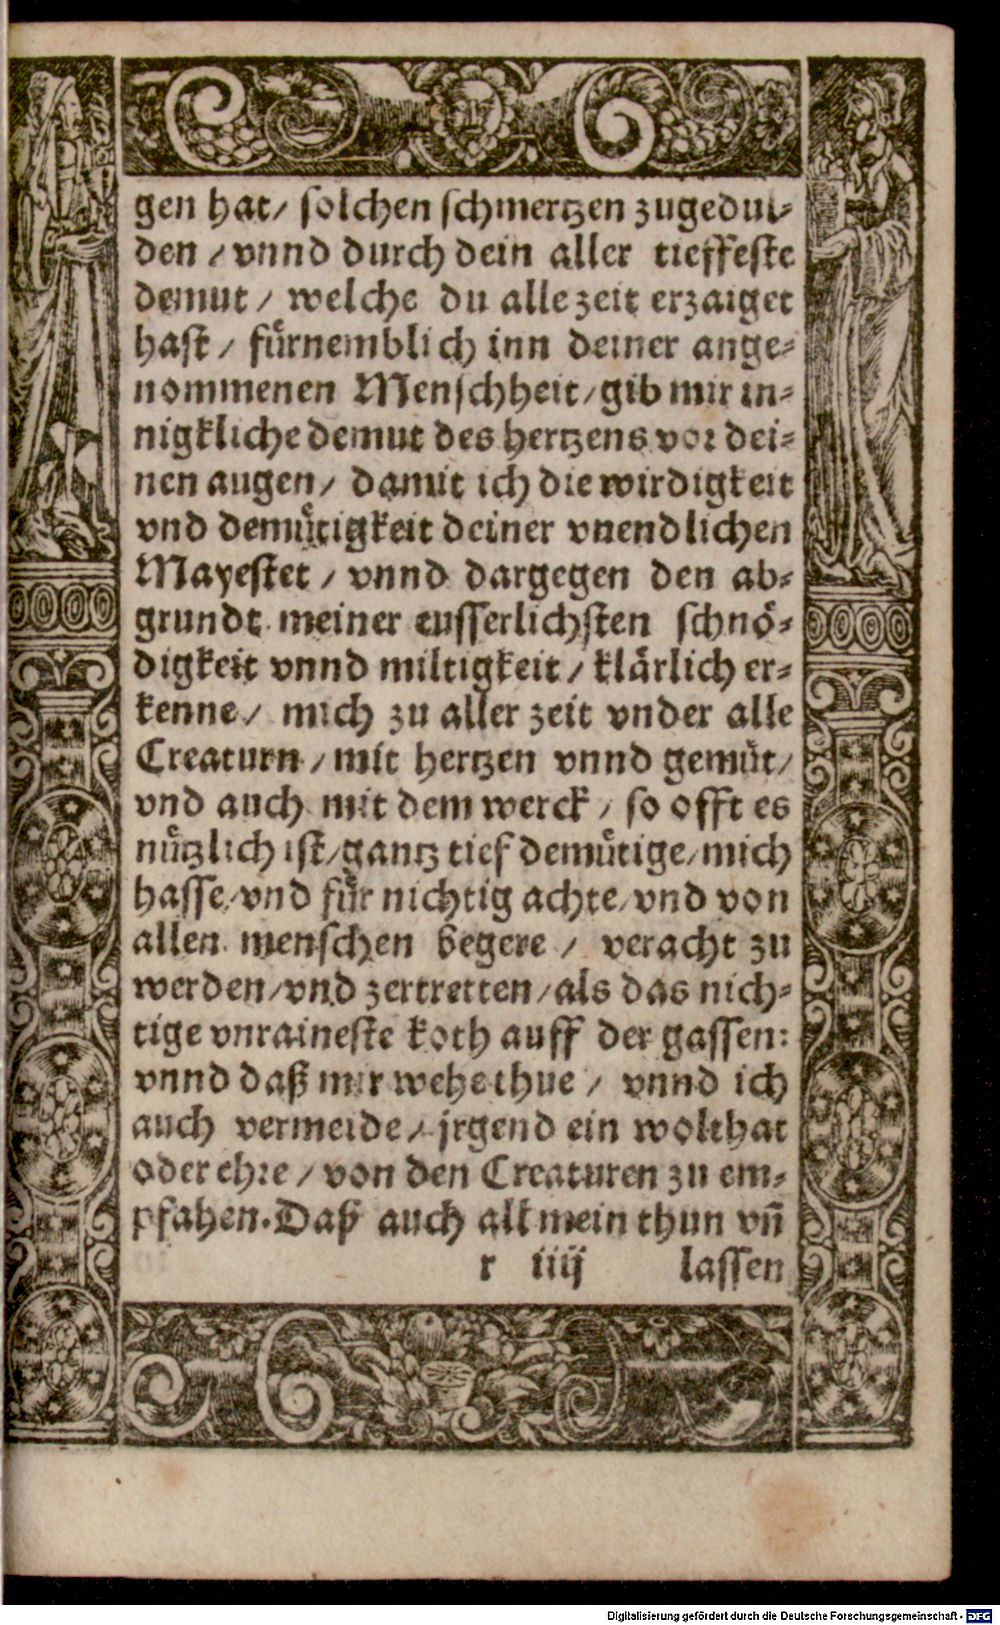 gen hat/ solchen schmertzen zugedul-
den / vnnd durch dein aller tieffeste
demut / welche du alle zeit erzaiget
hast / fürnemblich inn deiner ange-
nommenen Menschheit/gib mir in-
nigkliche demut des hertzens vor dei-
nen augen/ damit ich die wirdigkeit
vnd demütigkeit deiner vnendlichen
Mayestet / vnnd dargegen den ab-
grundt meiner eusserlichsten schnö-
digkeit vnnd miltigkeit/ klärlich er-
kenne/ mich zu aller zeit vnder alle
Creaturn / mit hertzen vnnd gemüt/
vnd auch mit dem werck / so offt es
nützlich ist/gantz tief demütige/mich
hasse/vnd für nichtig achte/vnd von
allen menschen begere / veracht zu
werden/vnd zertretten/als das nich-
tige vnraineste koth auff der gassen:
vnnd daß mir wehe thue / vnnd ich
auch vermeide / jrgend ein wolthat
oder ehre / von den Creaturen zu em-
pfahen. Daß auch all mein thun vñ
r iiij lassen
Digitalisierung gefördert durch die Deutsche Forschungsgemeinschaft - DFG